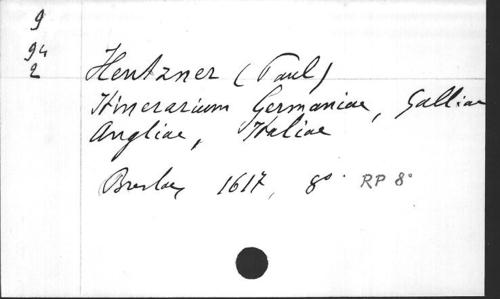 9
94
2
Hentzner (Paul)
Itinerarium Germaniae, Galliae
Angliae, Italiae
Breslay 1617, 8° RP 8°